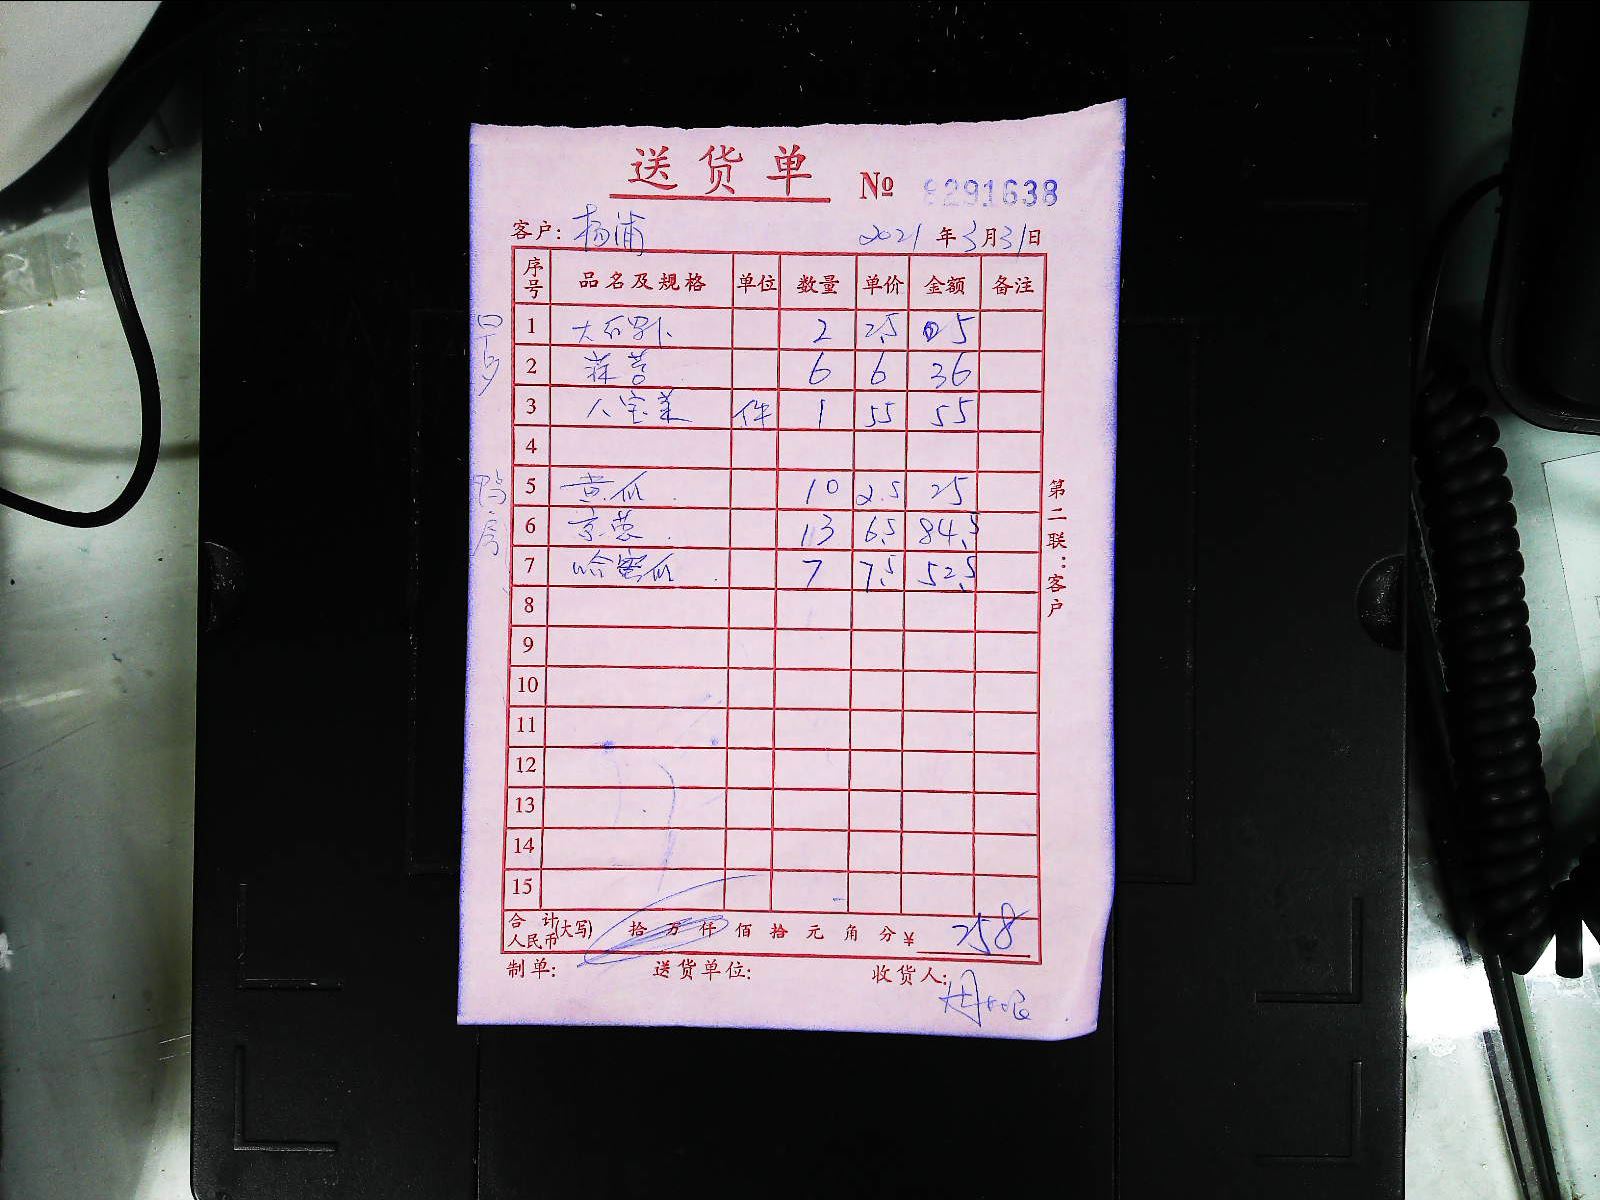 送货单 № 8291638
客户: 杨浦 2021年3月31日
序号 品名及规格 单位 数量 单价 金额 备注
1 2 2.5 5
2 6 6 36
3 件 1 55 55
4
5 黄瓜 10 2.5 25
6 京葱 13 6.5 84.5
7 哈蜜瓜 7 7.5 52.5
8
9
10
11
12
13
14
15
合计人民币(大写) 拾万仟佰拾元角分 ¥ 258
制单: 送货单位: 收货人:
第二联:客户
鸭房